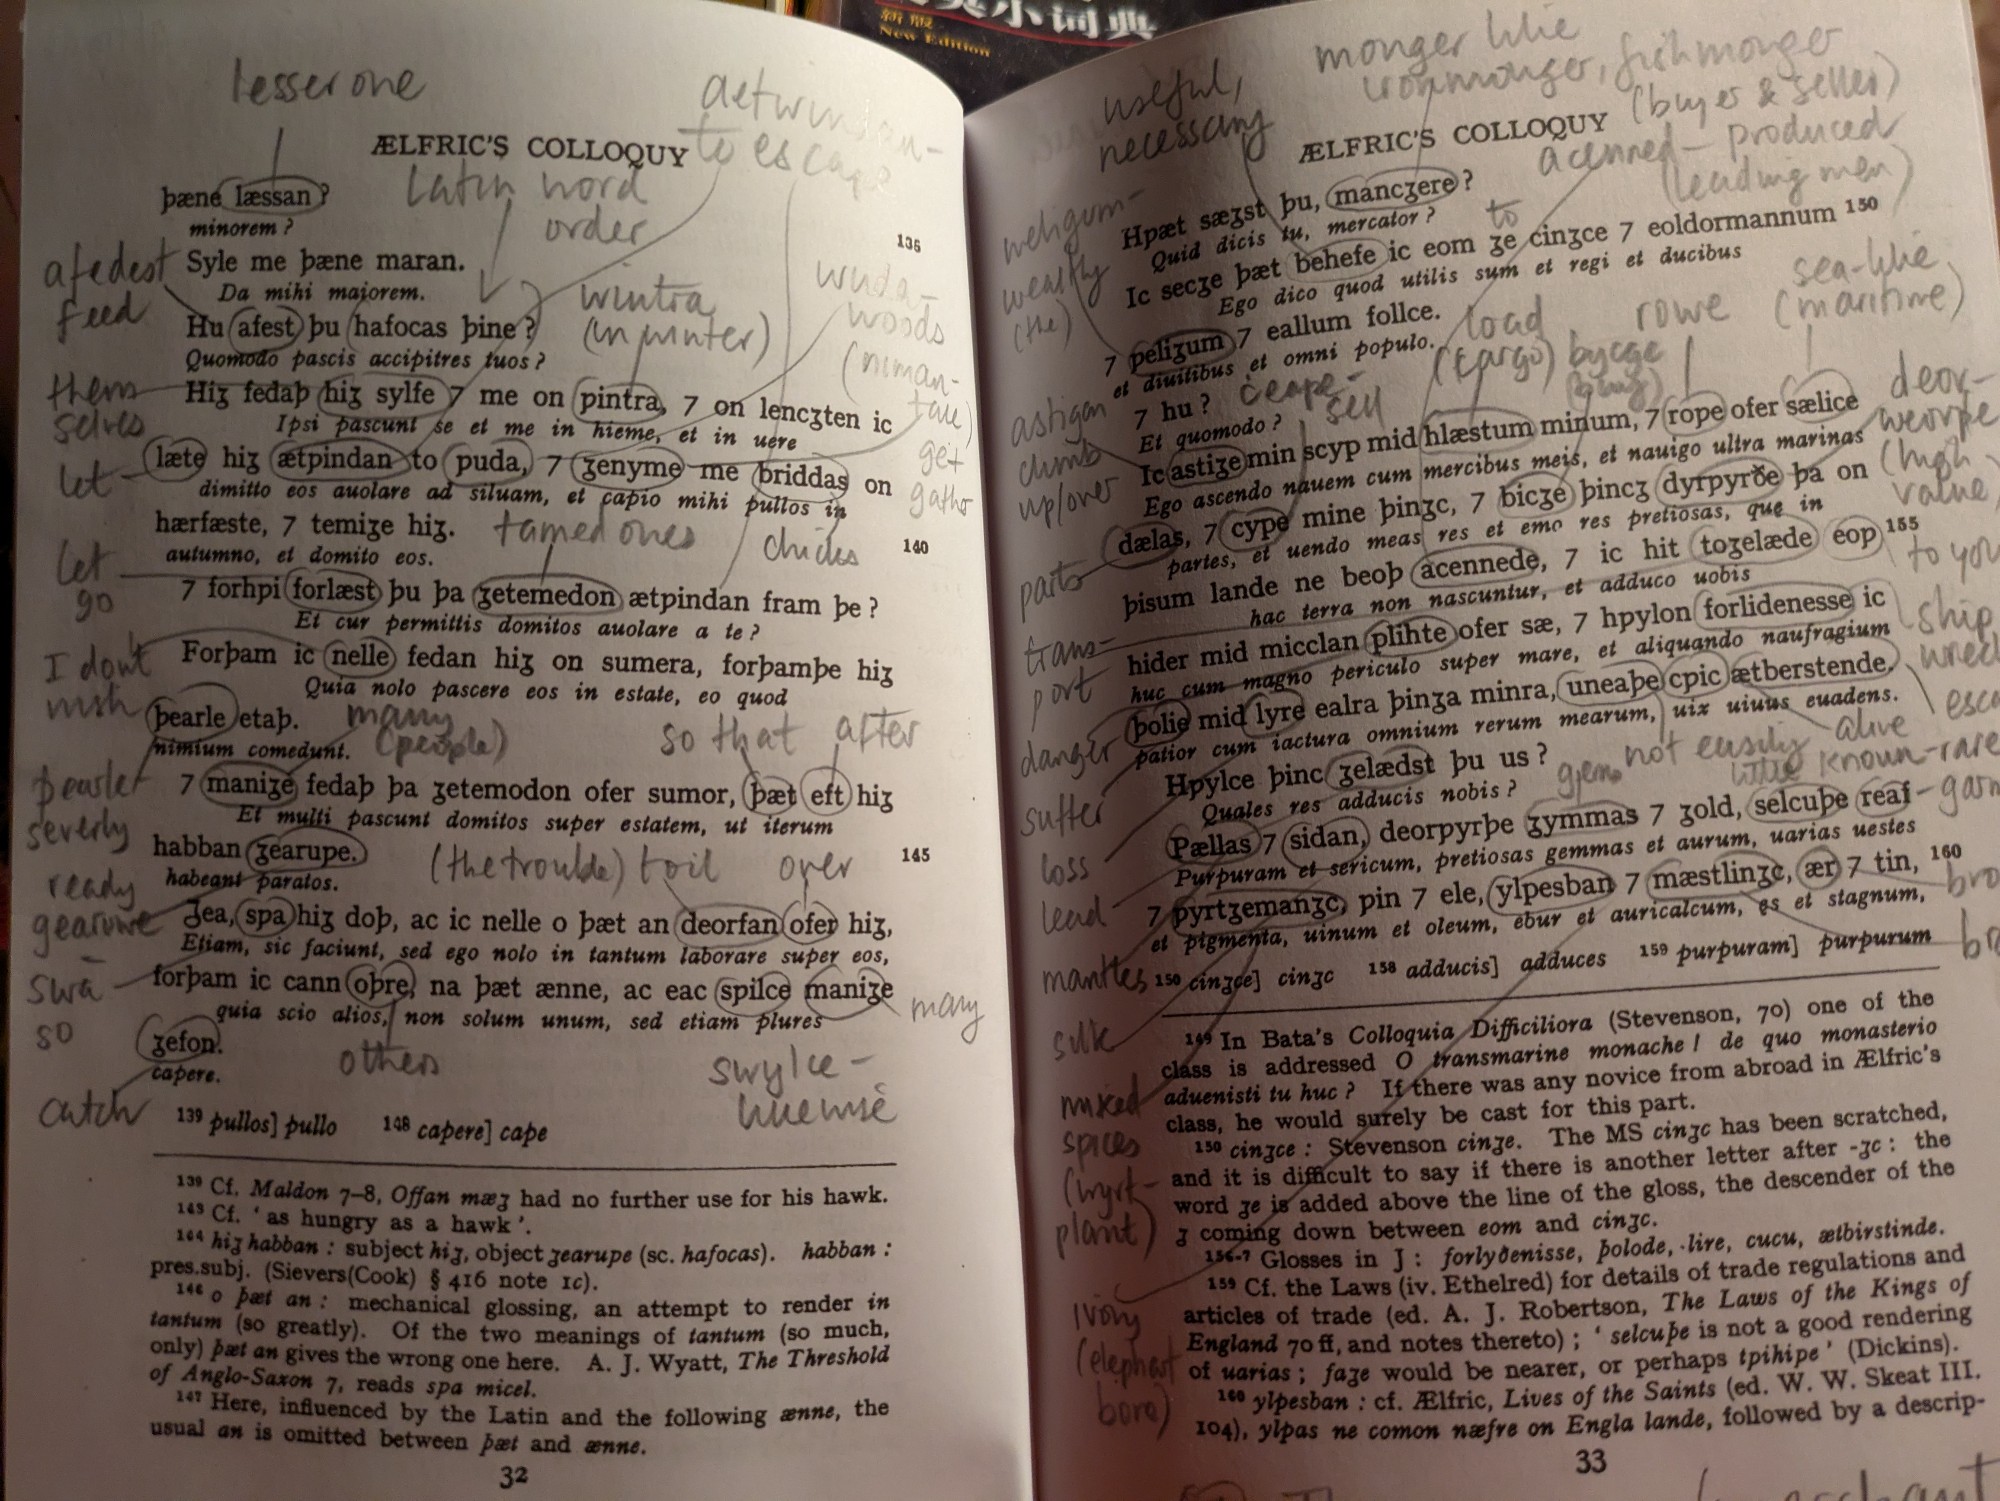 小词典
新版
New Edition
lesser one
aetwindan-
to escape
ÆLFRIC'S COLLOQUY
þæne læssan?
Latin word
order
minorem?
136
afedest
feed
Syle me þæne maran.
Da mihi majorem.
wuda-
woods
wintra
(in winter)
Hu afest þu hafocas þine?
Quomodo pascis accipitres tuos?
(niman-
take)
them
selves
Hiʒ fedaþ hiʒ sylfe ⁊ me on ƿintra, ⁊ on lencʒten ic
Ipsi pascunt se et me in hieme, et in uere
let
get
gather
læte hiʒ ætƿindan to ƿuda, ⁊ ʒenyme me briddas on
dimitto eos auolare ad siluam, et capio mihi pullos in
hærfæste, ⁊ temiʒe hiʒ.
tamed ones
chicks
140
autumno, et domito eos.
let
go
⁊ forhƿi forlæst þu þa ʒetemedon ætƿindan fram þe?
Et cur permittis domitos auolare a te?
I dont
wish
Forþam ic nelle fedan hiʒ on sumera, forþamþe hiʒ
Quia nolo pascere eos in estate, eo quod
þearle etaþ.
many
(people)
so that
after
nimium comedunt.
þearle-
severly
⁊ maniʒe fedaþ þa ʒetemodon ofer sumor, þæt eft hiʒ
Et multi pascunt domitos super estatem, ut iterum
habban ʒearuƿe.
(the trouble) toil
over
145
habeant paratos.
ready
gearuwe
Ʒea, sƿa hiʒ doþ, ac ic nelle o þæt an deorfan ofer hiʒ,
Etiam, sic faciunt, sed ego nolo in tantum laborare super eos,
swa-
so
forþam ic cann oþre, na þæt ænne, ac eac sƿilce maniʒe
many
quia scio alios, non solum unum, sed etiam plures
ʒefon.
others
swylce-
likewise
capere.
catch
139 pullos] pullo 148 capere] cape
139 Cf. Maldon 7-8, Offan mæʒ had no further use for his hawk.
143 Cf. ‘as hungry as a hawk’.
144 hiʒ habban : subject hiʒ, object ʒearuƿe (sc. hafocas). habban :
pres.subj. (Sievers(Cook) § 416 note 1c).
146 o þæt an : mechanical glossing, an attempt to render in
tantum (so greatly). Of the two meanings of tantum (so much,
only) þæt an gives the wrong one here. A. J. Wyatt, The Threshold
of Anglo-Saxon 7, reads sƿa micel.
147 Here, influenced by the Latin and the following ænne, the
usual an is omitted between þæt and ænne.
32
monger like
ironmonger, fishmonger
(buyer & seller)
useful,
necessary
ÆLFRIC'S COLLOQUY
acenned - produced
(leading men)
Hƿæt sæʒst þu, mancʒere?
Quid dicis tu, mercator?
to
weligum-
wealthy
(the)
Ic secʒe þæt behefe ic eom ʒe cinʒce ⁊ eoldormannum 150
Ego dico quod utilis sum et regi et ducibus
sea-like
(maritime)
⁊ ƿeliʒum ⁊ eallum follce.
load
(cargo)
rowe
et diuitibus et omni populo.
bycge
(buy)
⁊ hu?
ceape-
sell
Et quomodo?
astigan
climb
up/over
deor-
weorþe
(high
value)
Ic astiʒe min scyp mid hlæstum minum, ⁊ roƿe ofer sælice
Ego ascendo nauem cum mercibus meis, et nauigo ultra marinas
dælas, ⁊ cyƿe mine þinʒc, ⁊ bicʒe þincʒ dyrƿyrðe þa on
partes, et uendo meas res et emo res pretiosas, que in
parts
þisum lande ne beoþ acennede, ⁊ ic hit toʒelæde eoƿ 155
to you
hac terra non nascuntur, et adduco uobis
trans-
port
hider mid micclan plihte ofer sæ, ⁊ hƿylon forlidenesse ic
ship
huc cum magno periculo super mare, et aliquando naufragium
danger
þolie mid lyre ealra þinʒa minra, uneaþe cƿic ætberstende.
patior cum iactura omnium rerum mearum, uix uiuus euadens.
not easily
alive
Hƿylce þinc ʒelædst þu us?
gems
little known-rare
Quales res adducis nobis?
suffer
Pællas ⁊ sidan, deorƿyrþe ʒymmas ⁊ ʒold, selcuþe reaf
Purpuram et sericum, pretiosas gemmas et aurum, uarias uestes
loss
⁊ ƿyrtʒemanʒc, ƿin ⁊ ele, ylpesban ⁊ mæstlinʒc, ær ⁊ tin, 160
et pigmenta, uinum et oleum, ebur et auricalcum, es et stagnum,
lead
mantles
150 cinʒce] cinʒc 158 adducis] adduces 159 purpuram] purpurum
149 In Bata's Colloquia Difficiliora (Stevenson, 70) one of the
class is addressed O transmarine monache! de quo monasterio
aduenisti tu huc? If there was any novice from abroad in Ælfric's
class, he would surely be cast for this part.
silk
mixed
spices
(wyrt-
plant)
150 cinʒce : Stevenson cinʒe. The MS cinʒc has been scratched,
and it is difficult to say if there is another letter after -ʒc : the
word ʒe is added above the line of the gloss, the descender of the
ʒ coming down between eom and cinʒc.
156-7 Glosses in J : forlyðenisse, þolode, lire, cucu, ætbirstinde.
159 Cf. the Laws (iv. Ethelred) for details of trade regulations and
articles of trade (ed. A. J. Robertson, The Laws of the Kings of
England 70 ff, and notes thereto) ; ‘selcuþe is not a good rendering
of uarias ; faʒe would be nearer, or perhaps tƿihiƿe’ (Dickins).
160 ylpesban : cf. Ælfric, Lives of the Saints (ed. W. W. Skeat III.
104), ylpas ne comon næfre on Engla lande, followed by a descrip-
ivory
(elephant
bone)
33